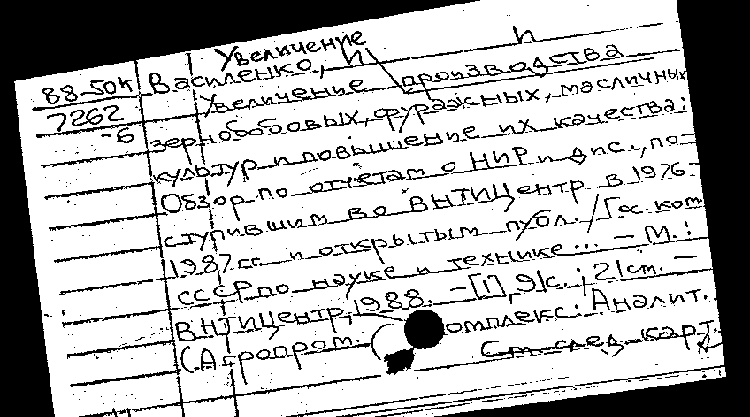 Увеличение
88-50к Василенко, И
7262 Увеличение производства
-6 зернобобовых, фуражных, масличных
культур и повышение их качества:
Обзор по отчетам о НИР и дис., по-
ступившим во ВНТИЦентр в 1976-
1987гг. и открытым публ. / Гос ком
СССР по науке и технике... - М.:
ВНТИЦентр, 1988. - [1], 91с.; 21см. -
(Агропром. комплекс. Аналит.
См. след. карт.